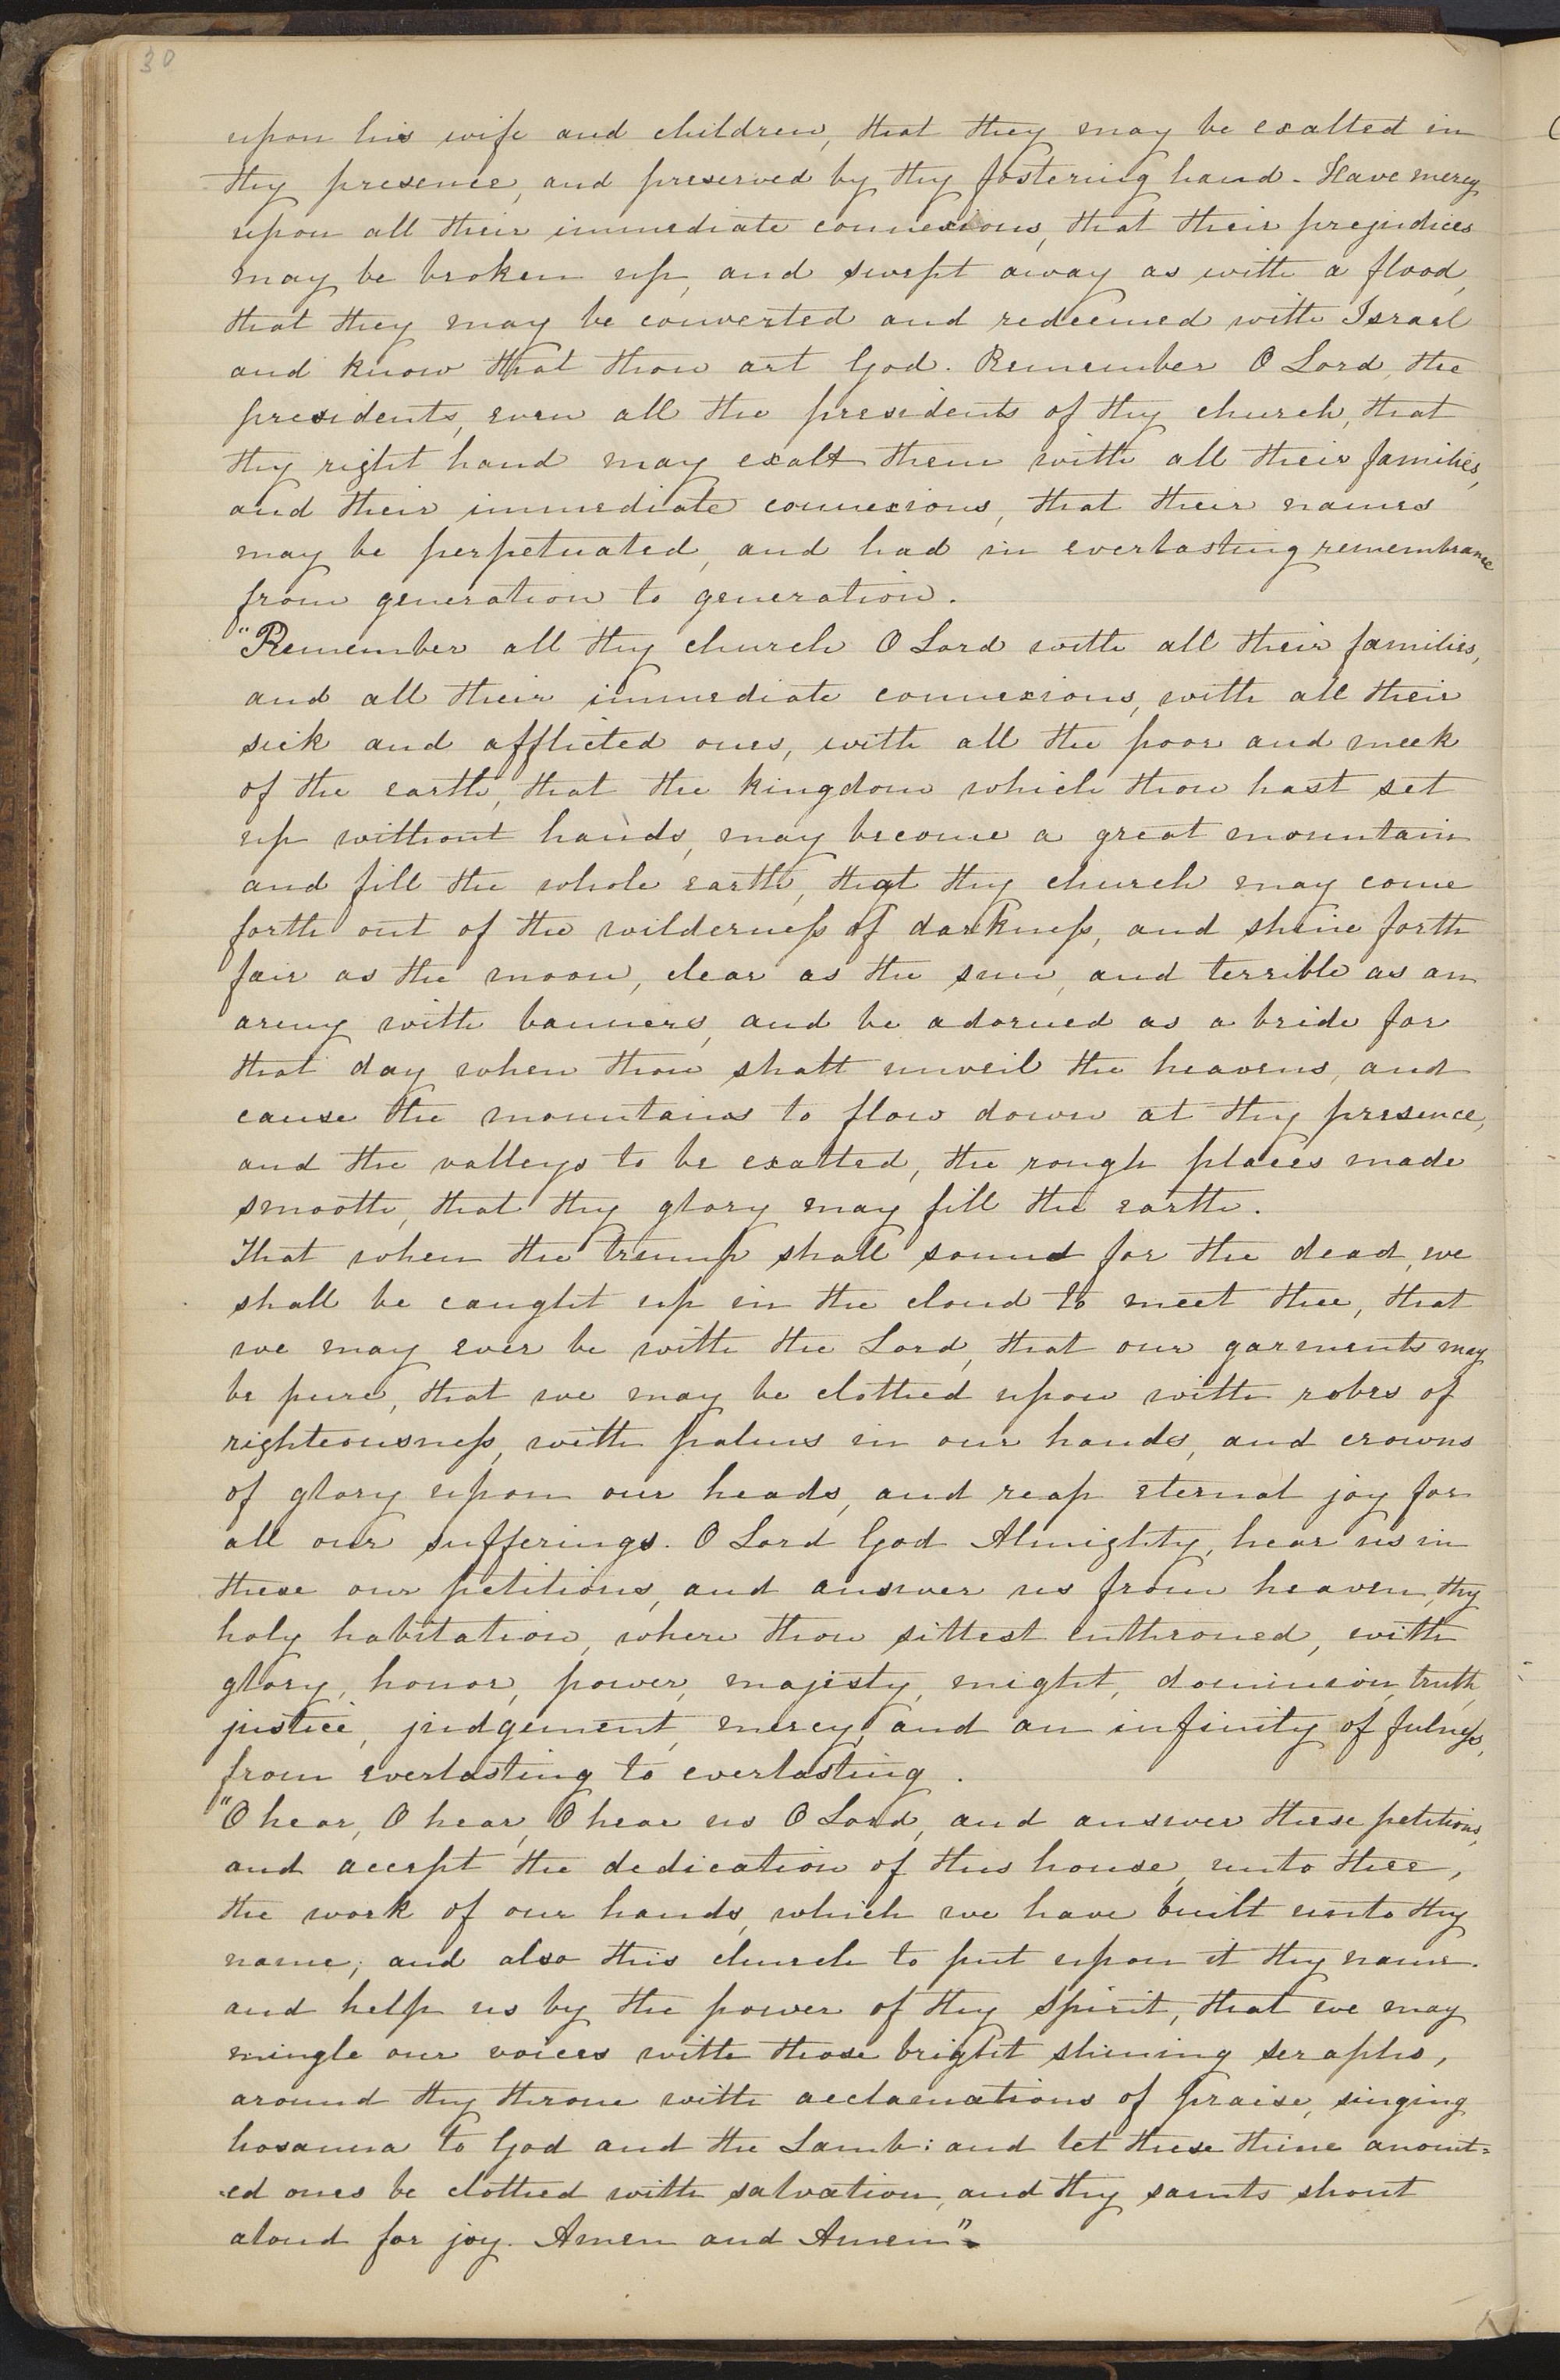 30
upon his wife and children, that they may be exalted in
thy presence, and preserved by thy fostering hand. Have mercy
upon all their immediate connexions, that their prejudices
may be broken up, and swept away as with a flood,
that they may be converted and redeemed with Israel
and know that thou art God. Remember O Lord, the
presidents, even all the presidents of thy church, that
thy right hand may exalt them with all their families,
and their immediate connexions, that their names
may be perpetuated, and had in everlasting remembrance
from generation to generation.
"Remember all thy church O Lord with all their families,
and all their immediate connexions, with all their
sick and afflicted ones, with all the poor and meek
of the earth, that the kingdom which thou hast set
up without hands, may become a great mountain
and fill the whole earth, that thy church may come
forth out of the wilderness of darkness, and shine forth
fair as the moon, clear as the sun, and terrible as an
army with banners, and be adorned as a bride for
that day when thou shalt unveil the heavens, and
cause the mountains to flow down at thy presence,
and the valleys to be exalted, the rough places made
smooth, that thy glory may fill the earth.
That when the trump shall sound for the dead, we
shall be caught up in the cloud to meet thee, that
we may ever be with the Lord, that our garments may
be pure, that we may be clothed upon with robes of
righteousness, with palms in our hands, and crowns
of glory upon our heads, and reap eternal joy for
all our sufferings. O Lord God Almighty, hear us in
these our petitions, and answer us from heaven, thy
holy habitation, where thou sittest enthroned, with
glory, honor, power, majesty, might, dominion, truth,
justice, judgement, mercy, and an infinity of fulness,
from everlasting to everlasting.
"O hear, O hear, O hear us O Lord, and answer these petitions,
and accept the dedication of this house, unto thee,
the work of our hands, which we have built unto thy
name; and also this church to put upon it thy name.
and help us by the power of thy Spirit, that we may
mingle our voices with those bright shining seraphs,
around thy throne with acclamations of praise, singing
hosanna to God and the Lamb: and let these thine anoint=
ed ones be clothed with salvation, and thy saints shout
aloud for joy. Amen and Amen".